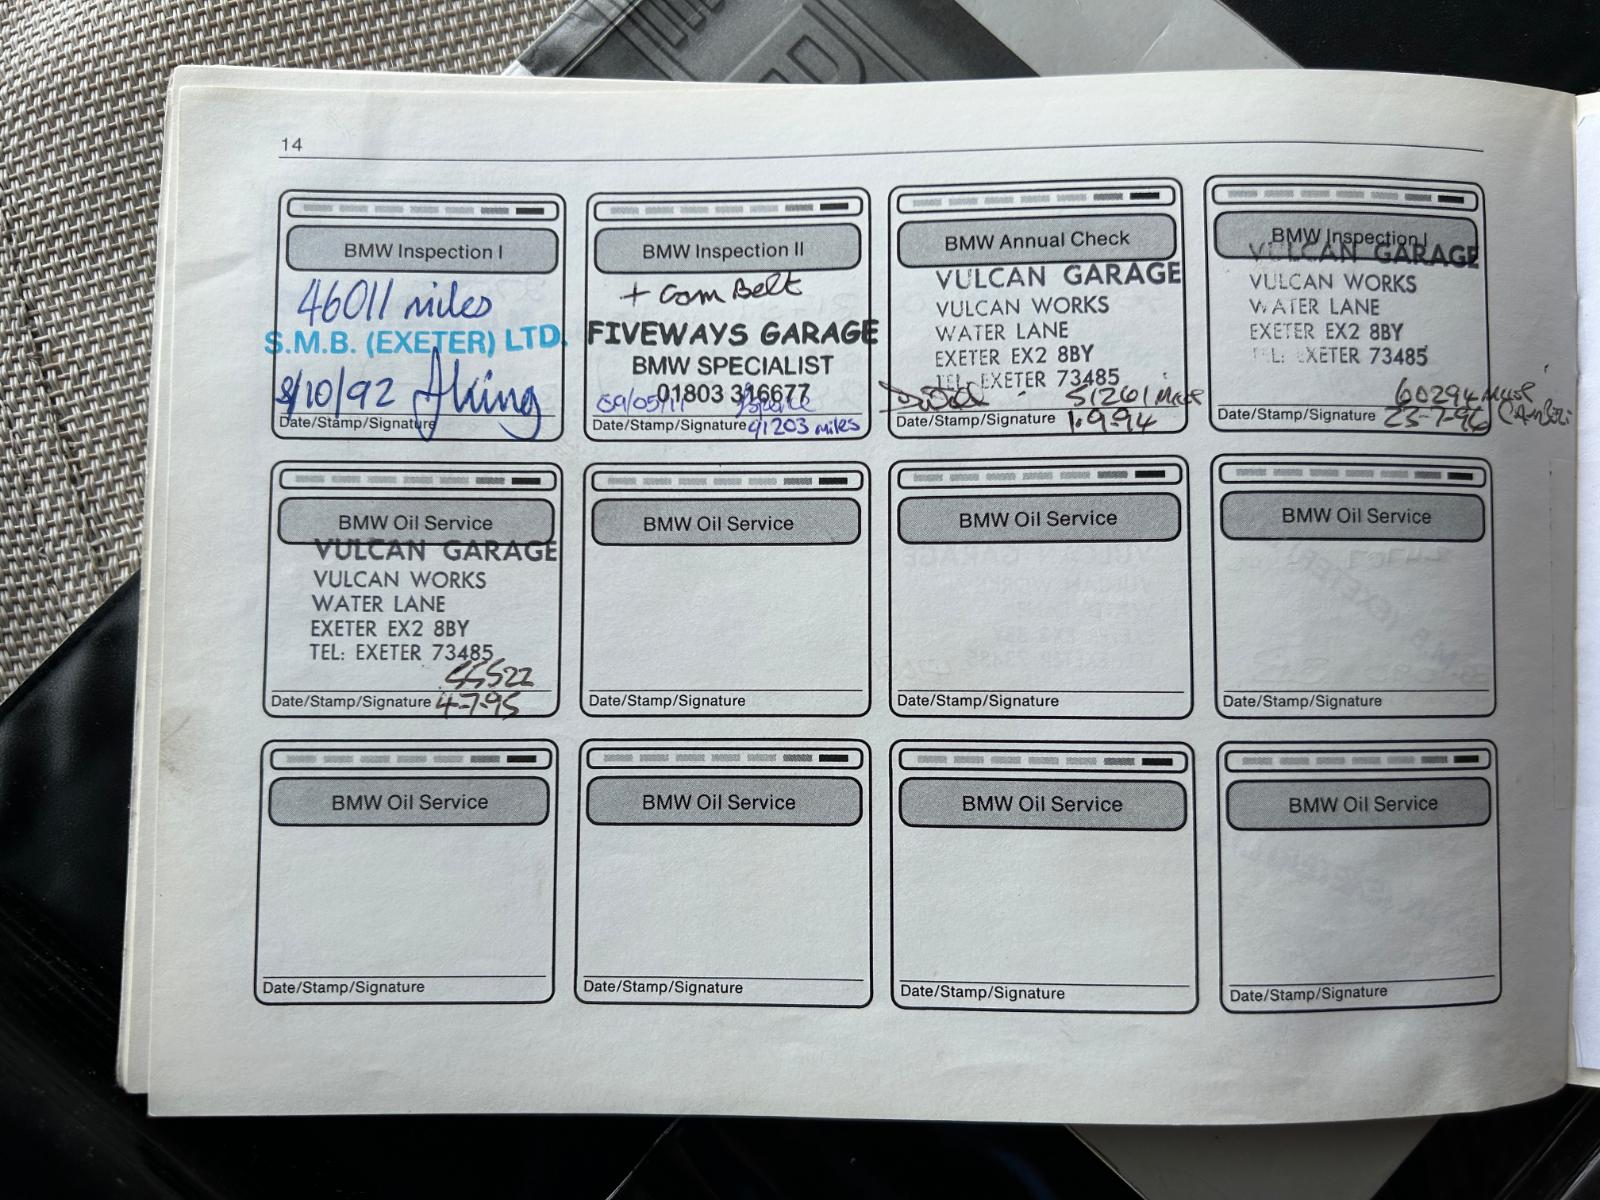 14
BMW Inspection I
46011 miles
S.M.B. (EXETER) LTD.
8/10/92
Date/Stamp/Signature
BMW Inspection II
+ Cam Belt
FIVEWAYS GARAGE
BMW SPECIALIST
01803 316677
09/05/11
Date/Stamp/Signature 91203 miles
BMW Annual Check
VULCAN GARAGE
VULCAN WORKS
WATER LANE
EXETER EX2 8BY
TEL: EXETER 73485
51261 Miles
Date/Stamp/Signature 1.9.94
BMW Inspection I
VULCAN GARAGE
VULCAN WORKS
WATER LANE
EXETER EX2 8BY
TEL: EXETER 73485
60294 Miles
Date/Stamp/Signature 23-7-96
BMW Oil Service
VULCAN GARAGE
VULCAN WORKS
WATER LANE
EXETER EX2 8BY
TEL: EXETER 73485
55522
Date/Stamp/Signature 4-7-95
BMW Oil Service
Date/Stamp/Signature
BMW Oil Service
Date/Stamp/Signature
BMW Oil Service
Date/Stamp/Signature
BMW Oil Service
Date/Stamp/Signature
BMW Oil Service
Date/Stamp/Signature
BMW Oil Service
Date/Stamp/Signature
BMW Oil Service
Date/Stamp/Signature